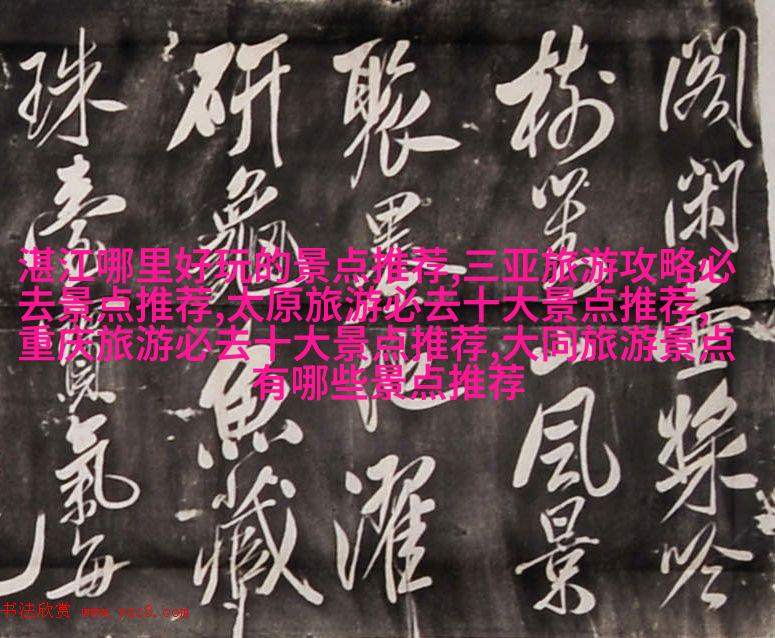 湛江哪里好玩的景点推荐,三亚旅游攻略必
去景点推荐,太原旅游必去十大景点推荐,
重庆旅游必去十大景点推荐,大同旅游景点
有哪些景点推荐
阁闲吟
樹山風景
聚墨池濯
研龜魚藏
珠臺氣每
书法欣赏 www.yac8.com